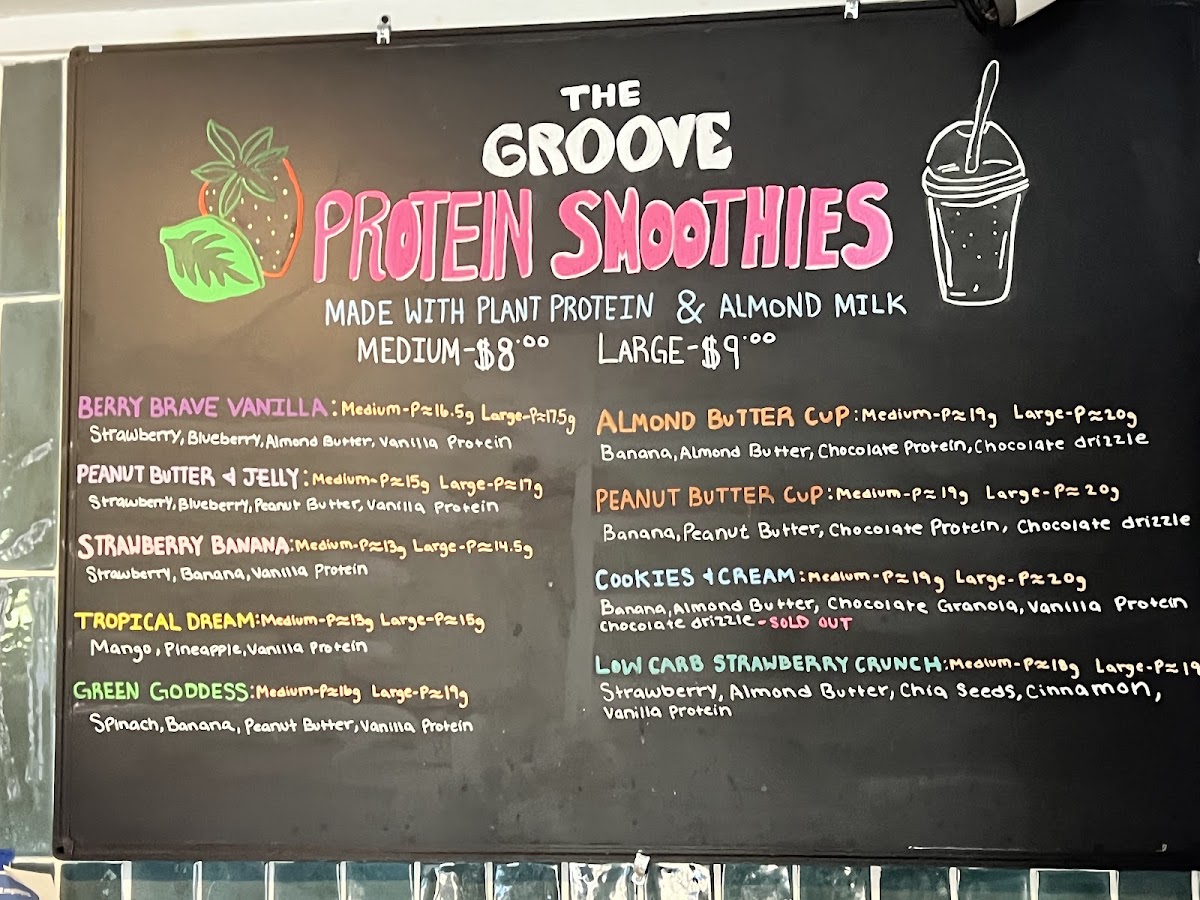 THE
GROOVE
PROTEIN SMOOTHIES
MADE WITH PLANT PROTEIN & ALMOND MILK
MEDIUM-$8.00 LARGE-$9.00
BERRY BRAVE VANILLA: Medium-P≈16.5g Large-P≈17.5g
Strawberry, Blueberry, Almond Butter, Vanilla Protein
PEANUT BUTTER & JELLY: Medium-P≈15g Large-P≈17g
Strawberry, Blueberry, Peanut Butter, Vanilla Protein
STRAWBERRY BANANA: Medium-P≈13g Large-P≈14.5g
Strawberry, Banana, Vanilla Protein
TROPICAL DREAM: Medium-P≈13g Large-P≈15g
Mango, Pineapple, Vanilla Protein
GREEN GODDESS: Medium-P≈16g Large-P≈19g
Spinach, Banana, Peanut Butter, Vanilla Protein
ALMOND BUTTER CUP: Medium-P≈19g Large-P≈20g
Banana, Almond Butter, Chocolate Protein, Chocolate drizzle
PEANUT BUTTER CUP: Medium-P≈19g Large-P≈20g
Banana, Peanut Butter, Chocolate Protein, Chocolate drizzle
COOKIES & CREAM: Medium-P≈19g Large-P≈20g
Banana, Almond Butter, Chocolate Granola, Vanilla Protein
Chocolate drizzle - SOLD OUT
LOW CARB STRAWBERRY CRUNCH: Medium-P≈18g Large-P≈19
Strawberry, Almond Butter, Chia Seeds, Cinnamon,
Vanilla Protein